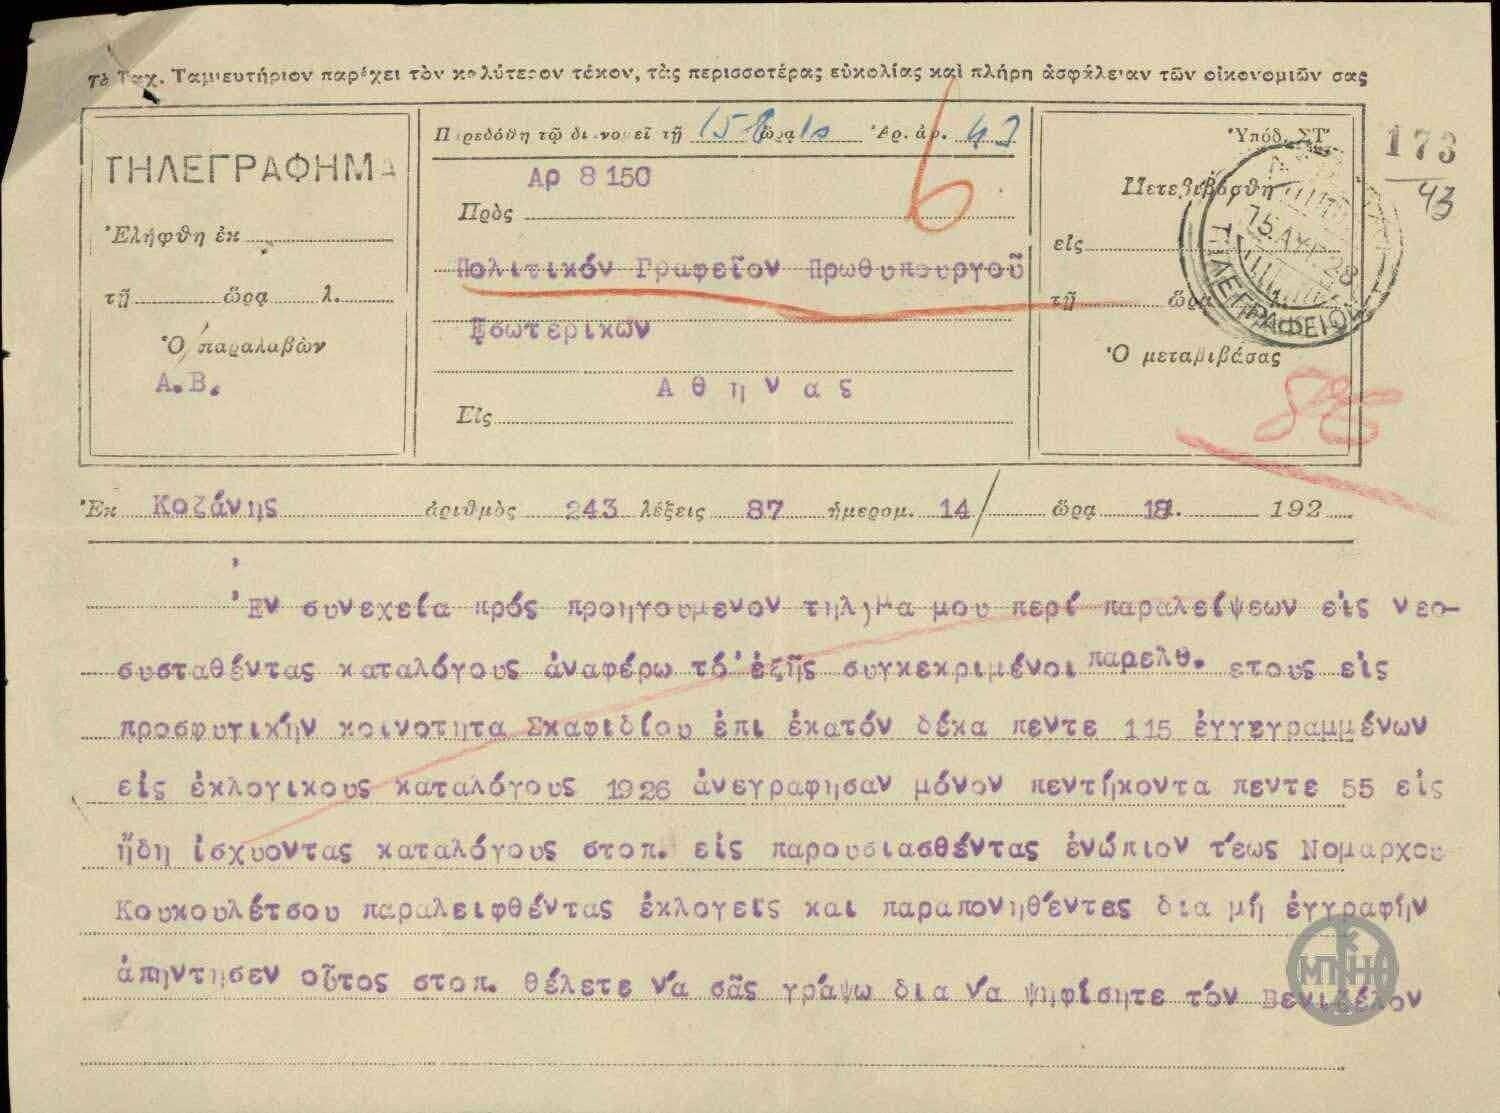 Τὸ Ταχ. Ταμιευτήριον παρέχει τὸν καλύτερον τόκον, τὰς περισσοτέρας εὐκολίας καὶ πλήρη ἀσφάλειαν τῶν οἰκονομιῶν σας
ΤΗΛΕΓΡΑΦΗΜΑ
Ἐλήφθη ἐκ
τῇ ὥρᾳ λ.
Ὁ παραλαβὼν
Α.Β.
Παρεδόθη τῷ διανομεῖ τῇ 15-8 ὥρᾳ 10 Ἀρ. ἀρ. 43
Αρ 8150
6
Πρὸς
Πολιτικόν Γραφεῖον Πρωθυπουργοῦ
Εσωτερικων
Αθηνας
Εἰς
Ὑπόδ. ΣΤ'
173
43
Μετεβιβάσθη
εἰς
τῇ ὥρᾳ
Ὁ μεταβιβάσας
15.ΑΥΓ.28
ΤΗΛΕΓΡΑΦΕΙΟΝ
Ἐκ Κοζάνης ἀριθμὸς 243 λέξεις 87 ἡμερομ. 14/ ὥρᾳ 192
Ἐν συνεχεία πρός προηγουμενον τηλ)μα μου περί παραλείψεων εἰς νεο-
συσταθέντας καταλόγους ἀναφέρω τό ἑξῆς συγκεκριμένοι παρελθ. ετους εἰς
προσφυγικήν κοινοτητα Σκαφιδίου ἐπι ἑκατόν δέκα πεντε 115 ἐγγεγραμμένων
εἰς ἐκλογικους καταλόγους 1926 ἀνεγραφησαν μόνον πεντήκοντα πεντε 55 εἰς
ἤδη ἰσχυοντας καταλόγους στοπ. εἰς παρουσιασθέντας ἐνώπιον τέως Νομαρχου
Κουκουλέτσου παραλειφθέντας ἐκλογεῖς και παραπονηθέντας δια μή ἐγγραφήν
ἀπήντησεν οὗτος στοπ. θέλετε νά σᾶς γράψω δια νά ψηφίσητε τόν Βενιζέλον
ΜΠΚΗΘ